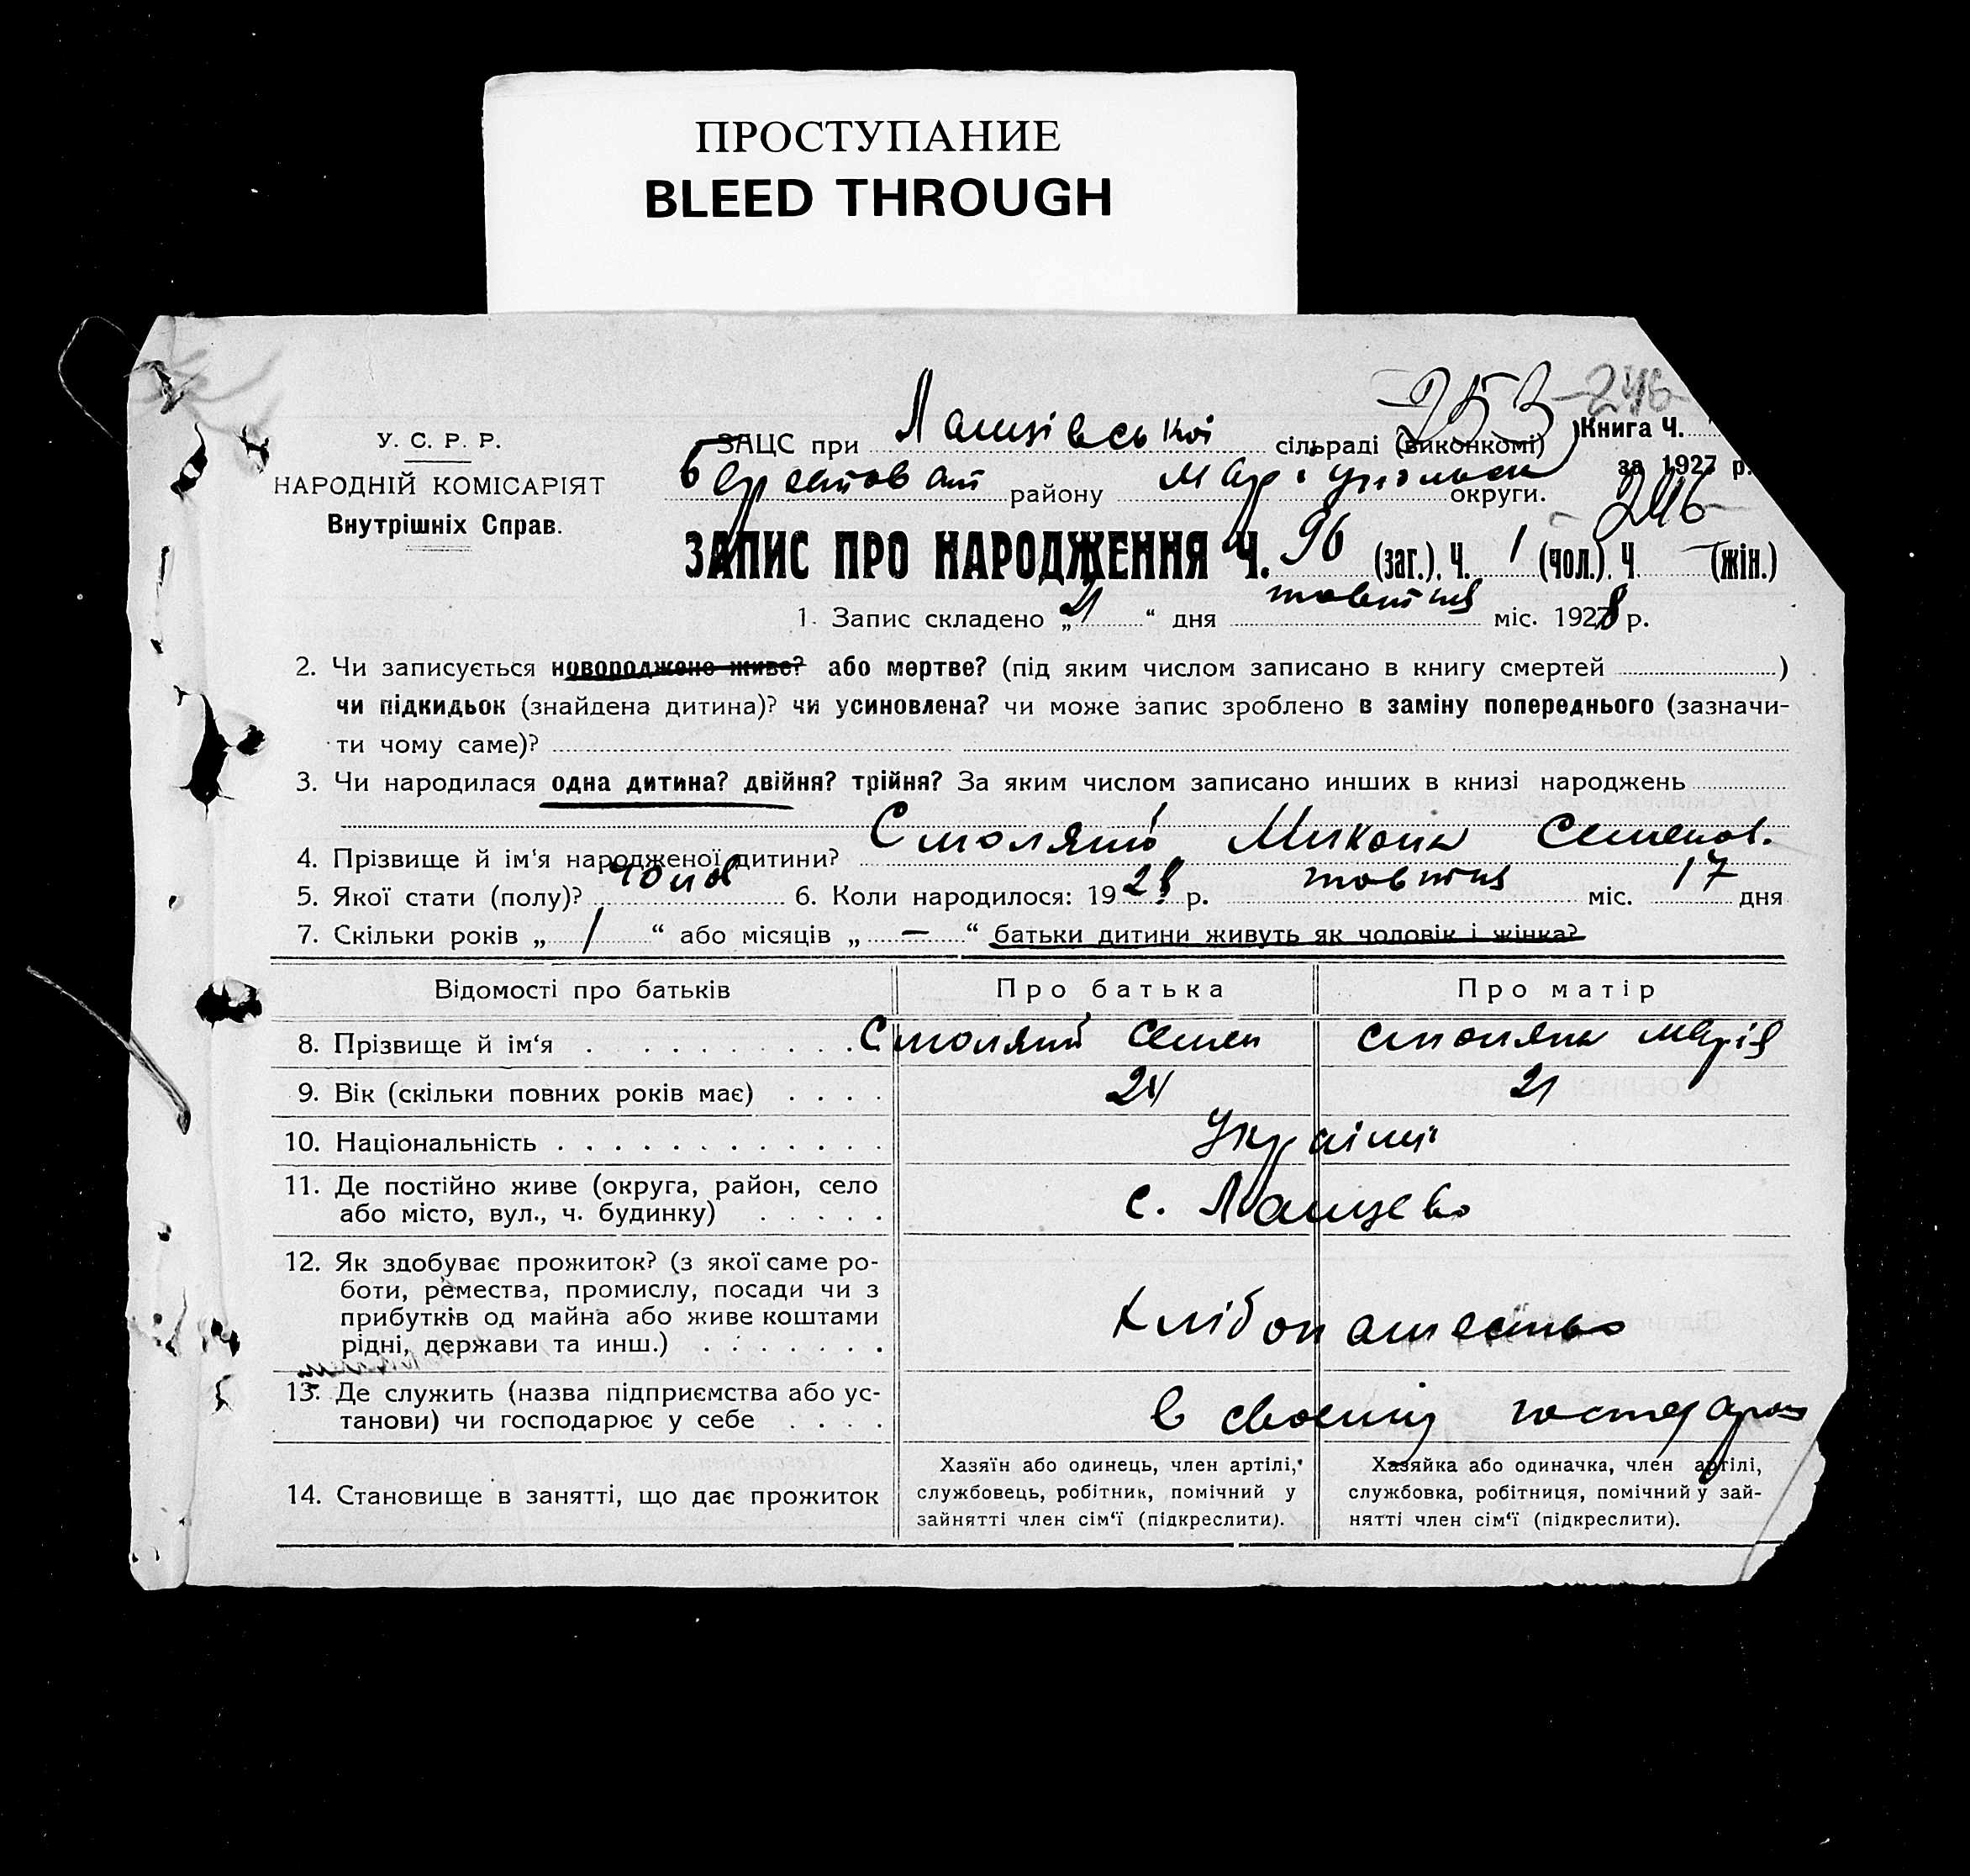 ПРОСТУПАНИЕ
BLEED THROUGH
253 246
У. С. Р. Р.
НАРОДНІЙ КОМІСАРІЯТ
Внутрішніх Справ.
ЗАЦС при сільраді (виконкомі) Книга Ч.
району округи. за 1927 р.
246
ЗАПИС ПРО НАРОДЖЕННЯ Ч. 96 (заг.). Ч. 1 (чол.). Ч. — (жін.)
1. Запис складено „21“ дня жовтня міс. 1928 р.
2. Чи записується новороджене живе? або мертве? (під яким числом записано в книгу смертей )
чи підкидьок (знайдена дитина)? чи усиновлена? чи може запис зроблено в заміну попереднього (зазначи-
ти чому саме)?
3. Чи народилася одна дитина? двійня? трійня? За яким числом записано инших в книзі народжень
4. Прізвище й ім‘я народженої дитини? Смоляний Микола Семенов.
5. Якої стати (полу)? чолов 6. Коли народилося: 1928 р. жовтня міс. 17 дня
7. Скільки років „ 1 “ або місяців „ — “ батьки дитини живуть як чоловік і жінка?
Відомості про батьків Про батька Про матір
8. Прізвище й ім‘я Смоляний Семен Смоляна Марія
9. Вік (скільки повних років має) 24 21
10. Національність Українці
11. Де постійно живе (округа, район, село
або місто, вул., ч. будинку) с.
12. Як здобуває прожиток? (з якої саме ро-
боти, ремества, промислу, посади чи з
прибутків од майна або живе коштами
рідні, держави та инш.) Хлібопашество
13. Де служить (назва підприємства або ус-
танови) чи господарює у себе в своєму
14. Становище в занятті, що дає прожиток
Хазяїн або одинець, член артілі,
службовець, робітник, помічний у
зайнятті член сім‘ї (підкреслити).
Хазяйка або одиначка, член артілі,
службовка, робітниця, помічний у зай-
нятті член сім‘ї (підкреслити).